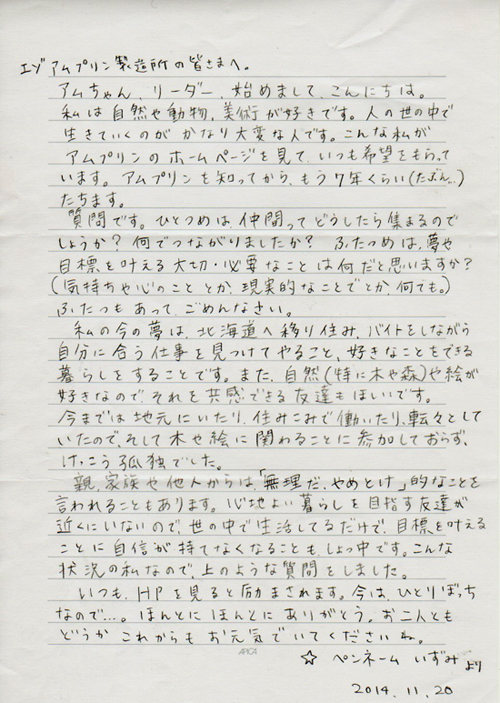 エゾアムプリン製造所の皆さまへ。
アムちゃん、リーダー、始めまして、こんにちは。
私は自然や動物、美術が好きです。人の世の中で
生きていくのがかなり大変な人です。こんな私が
アムプリンのホームページを見て、いつも希望をもらって
います。アムプリンを知ってから、もう7年くらい(たぶん…)
たちます。
質問です。ひとつめは、仲間ってどうしたら集まるので
しょうか?何でつながりましたか? ふたつめは、夢や
目標を叶える大切・必要なことは何だと思いますか?
(気持ちや心のこととか、現実的なことでとか、何でも。)
ふたつもあって、ごめんなさい。
私の今の夢は、北海道へ移り住み、バイトをしながら
自分に合う仕事を見つけてやること、好きなこともできる
暮らしをすることです。また、自然(特に木や森)や絵が
好きなので、それを共感できる友達もほしいです。
今までは地元にいたり、住みこみで働いたり、転々として
いたので、そして木や絵に関わることに参加しておらず、
けっこう孤独でした。
親、家族や他人からは「無理だ、やめとけ」的なことを
言われることもあります。心地よい暮らしを目指す友達が
近くにいないので、世の中で生活してるだけで、目標を叶える
ことに自信が持てなくなることもしょっ中です。こんな
状況の私なので、上のような質問をしました。
いつも、HPを見ると励まされます。今は、ひとりぼっち
なので…。ほんとにほんとにありがとう。お二人とも
どうかこれからもお元気でいてくださいね。
☆ ペンネーム いずみ より
APICA
2014.11.20